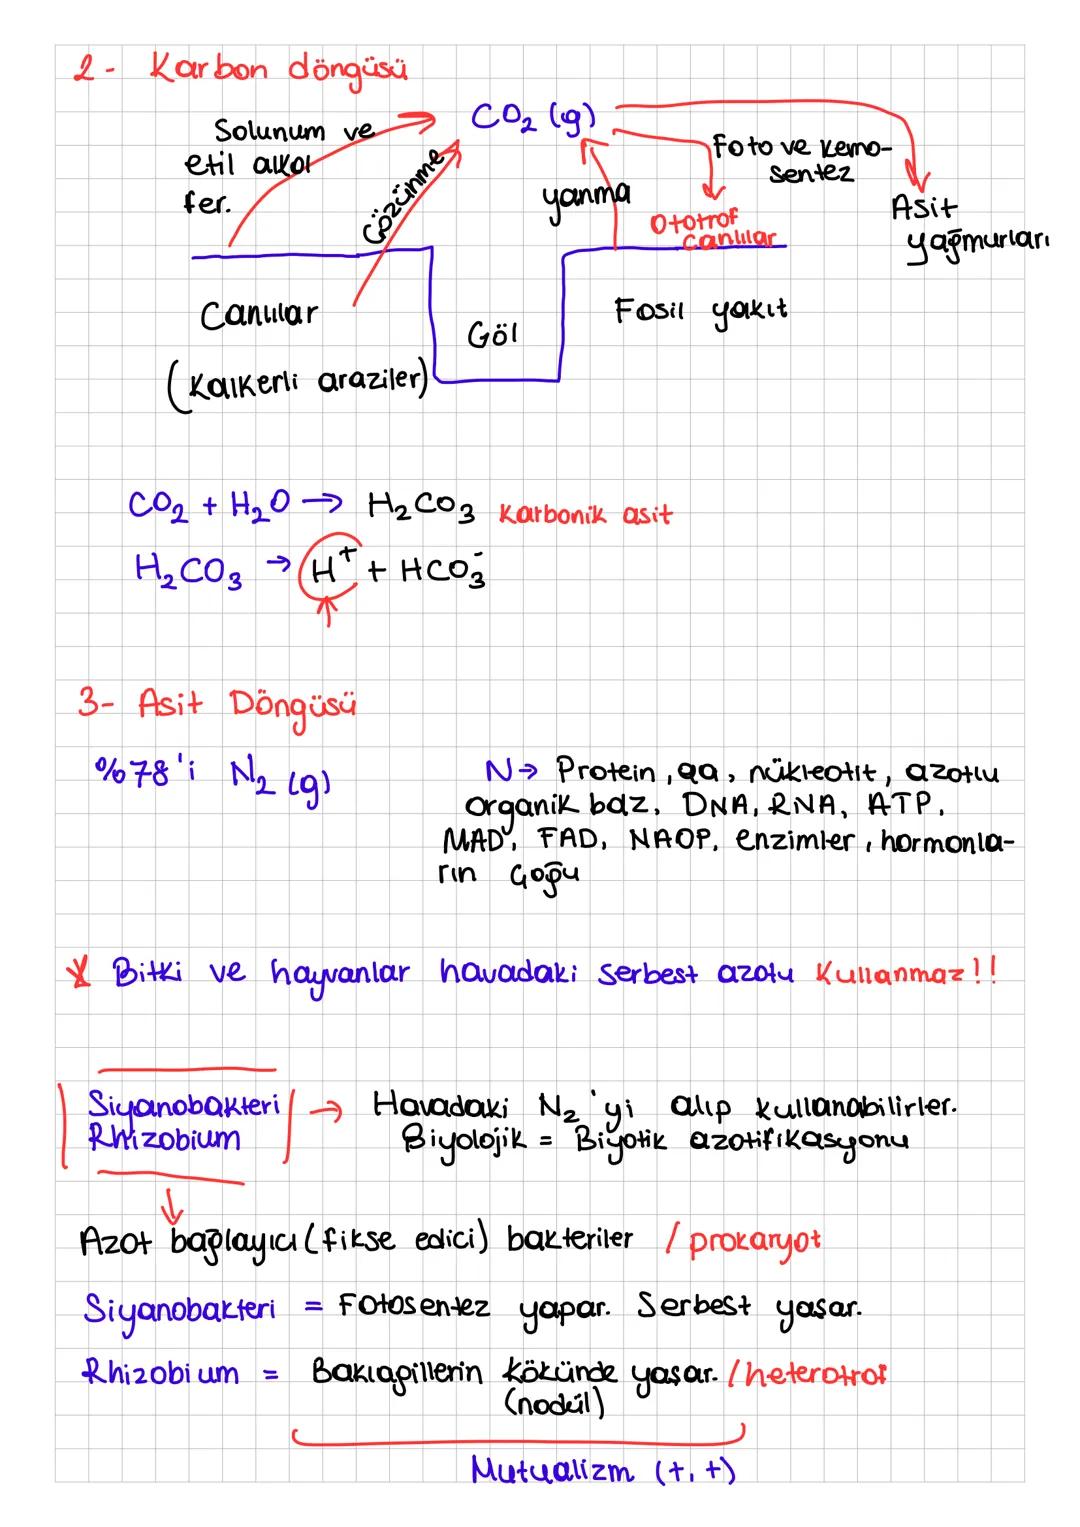 2- Karbon döngüsü
CO2 (g)
Solunum ve
etil alkol
fer.
Çözünme
yanma
Foto ve kemo-
sentez
Ototrof
canlılar
Asit
yağmurları
Canlılar
Göl
Fosil yakıt
(Kalkerli araziler)
CO2 + H2O → H2CO3 Karbonik asit
H2CO3 → H+ + HCO3-
3- Asit Döngüsü
%78'i N2 (g)
N→ Protein, aa, nükleotit, azotlu
organik baz, DNA, RNA, ATP,
NAD, FAD, NADP, enzimler, hormonla-
rın çoğu
* Bitki ve hayvanlar havadaki serbest azotu Kullanmaz!!
Siyanobakteri
Rhizobium
→ Havadaki N2'yi alıp kullanabilirler.
Biyolojik = Biyotik azotifikasyonu
Azot bağlayıcı (fikse edici) bakteriler / prokaryot
Siyanobakteri = Fotosentez yapar. Serbest yaşar.
Rhizobium = Baklagillerin kökünde yaşar. / heterotrof
(nodül)
Mutualizm (+,+)